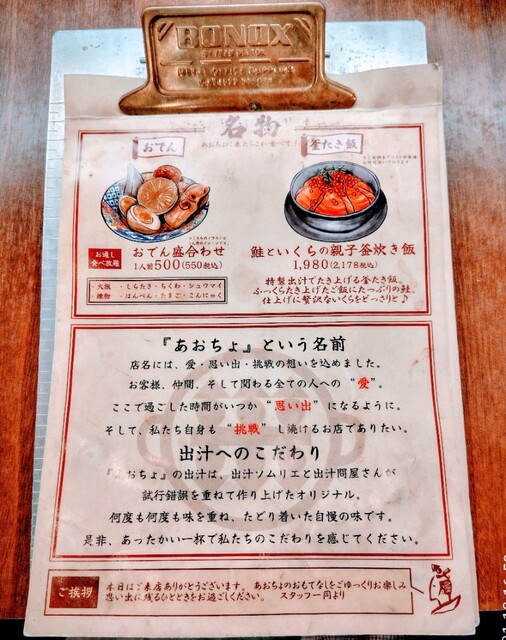 BONOX
名物
あおちょに来たらこれ食べて！
おでん
釜たき飯
お通し
食べ放題
おでん盛合わせ
1人前500(550税込)
・大根 ・しらたき・ちくわ・シュウマイ
・練物 ・はんぺん・たまご・こんにゃく
鮭といくらの親子釜炊き飯
1,980(2,178税込)
特製出汁でたき上げる釜たき飯。
ふっくらたき上げたご飯にたっぷりの鮭、
仕上げに贅沢ないくらをどっさりと♪
『あおちょ』という名前
店名には、愛・思い出・挑戦の想いを込めました。
お客様、仲間、そして関わる全ての人への“愛”。
ここで過ごした時間がいつか“思い出”になるように。
そして、私たち自身も“挑戦”し続けるお店でありたい。
出汁へのこだわり
『あおちょ』の出汁は、出汁ソムリエと出汁問屋さんが
試行錯誤を重ねて作り上げたオリジナル。
何度も何度も味を重ね、たどり着いた自慢の味です。
是非、あったかい一杯で私たちのこだわりを感じてください。
ご挨拶
本日はご来店ありがとうございます。 あおちょのおもてなしをごゆっくりお楽しみ
思い出に残るひとときをお過ごしください。 スタッフ一同より